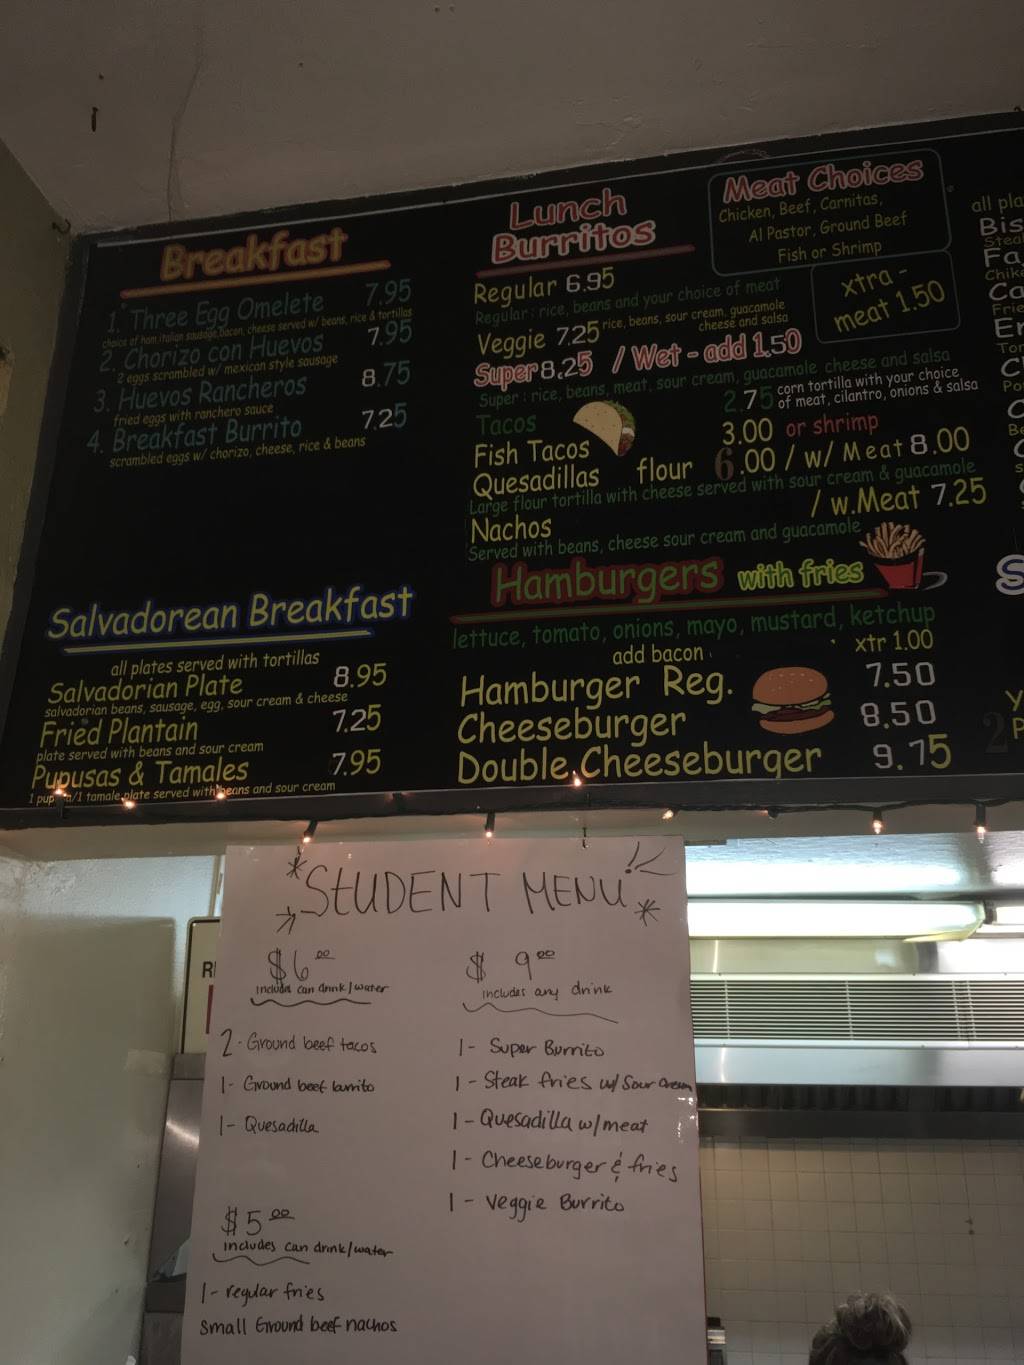 Breakfast
1. Three Egg Omelete 7.95
choice of ham, italian sausage, bacon, cheese served w/ beans, rice & tortillas
2. Chorizo con Huevos 7.95
2 eggs scrambled w/ mexican style sausage
3. Huevos Rancheros 8.75
fried eggs with ranchero sauce
4. Breakfast Burrito 7.25
scrambled eggs w/ chorizo, cheese, rice & beans
Salvadorean Breakfast
all plates served with tortillas
Salvadorian Plate 8.95
salvadorian beans, sausage, egg, sour cream & cheese
Fried Plantain 7.25
plate served with beans and sour cream
Pupusas & Tamales 7.95
1 pupusa/1 tamale plate served with beans and sour cream
Lunch
Burritos
Regular 6.95
Regular : rice, beans and your choice of meat
Veggie 7.25 rice, beans, sour cream, guacamole
cheese and salsa
Super 8.25 / Wet - add 1.50
Super : rice, beans, meat, sour cream, guacamole cheese and salsa
Tacos 2.75 corn tortilla with your choice
of meat, cilantro, onions & salsa
Fish Tacos 3.00 or shrimp
Quesadillas flour 6.00 / w/ Meat 8.00
Large flour tortilla with cheese served with sour cream & guacamole
Nachos / w.Meat 7.25
Served with beans, cheese sour cream and guacamole
Meat Choices
Chicken, Beef, Carnitas,
Al Pastor, Ground Beef
Fish or Shrimp
xtra -
meat 1.50
Hamburgers with fries
lettuce, tomato, onions, mayo, mustard, ketchup
add bacon xtr 1.00
Hamburger Reg. 7.50
Cheeseburger 8.50
Double Cheeseburger 9.75
all pla
Bis
Stea
Fa
Chike
Ca
Frie
Er
Tor
STUDENT MENU
$6.00
includes can drink/water
2 - Ground beef tacos
1- Ground beef burrito
1- Quesadilla
$5.00
includes can drink/water
1- regular fries
small Ground beef nachos
$ 9.00
includes any drink
1- Super Burrito
1- Steak fries w/ Sour cream
1- Quesadilla w/meat
1- Cheeseburger & fries
1- Veggie Burrito